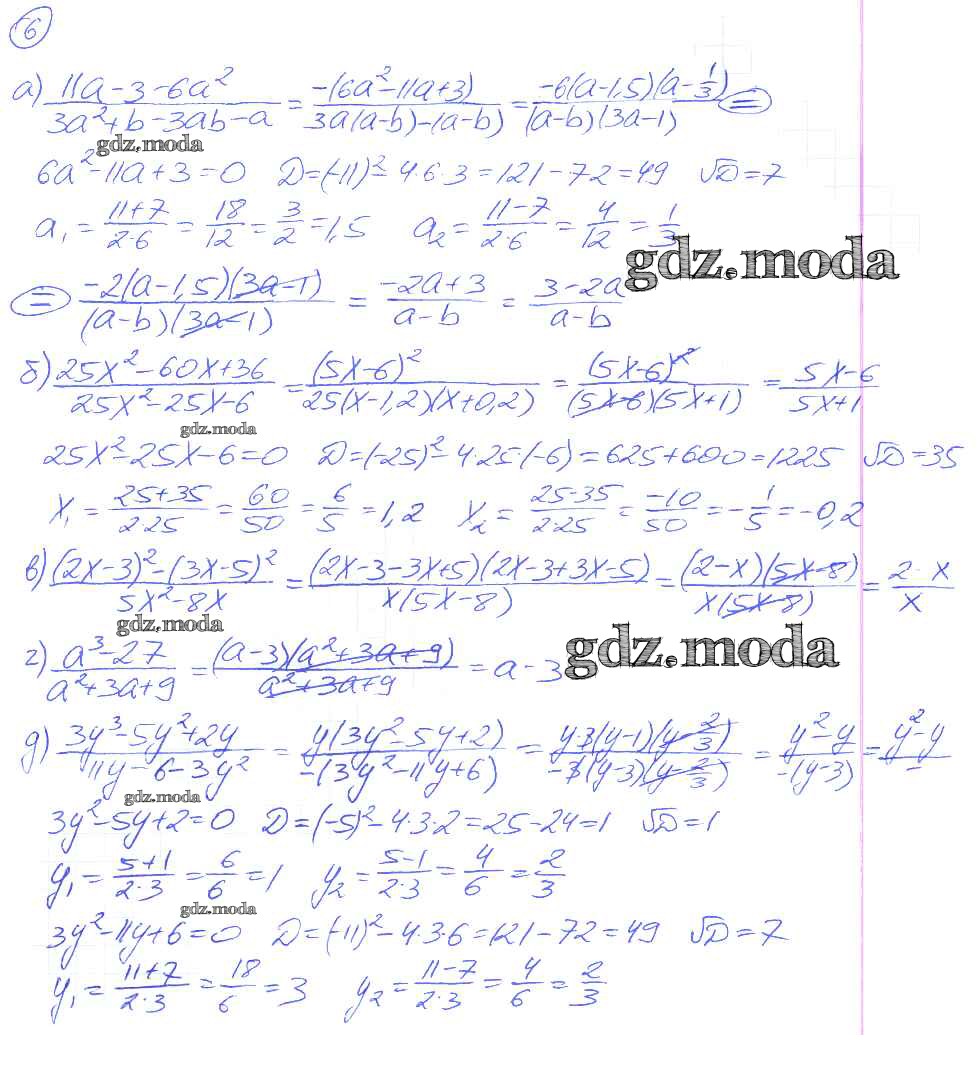 6
а) (11a-3-6a²)/(3a²+b-3ab-a) = (-(6a²-11a+3))/(3a(a-b)-(a-b)) = (-6(a-1,5)(a-1/3))/((a-b)(3a-1)) =
gdz.moda
6a²-11a+3=0 D=(-11)²-4·6·3=121-72=49 √D=7
a₁=(11+7)/(2·6)=18/12=3/2=1,5 a₂=(11-7)/(2·6)=4/12=1/3
gdz.moda
= (-2(a-1,5)(3a-1))/((a-b)(3a-1)) = (-2a+3)/(a-b) = (3-2a)/(a-b)
б) (25x²-60x+36)/(25x²-25x-6) = (5x-6)²/(25(x-1,2)(x+0,2)) = (5x-6)²/((5x-6)(5x+1)) = (5x-6)/(5x+1)
gdz.moda
25x²-25x-6=0 D=(-25)²-4·25(-6)=625+600=1225 √D=35
x₁=(25+35)/(2·25)=60/50=6/5=1,2 x₂=(25-35)/(2·25)=-10/50=-1/5=-0,2
в) ((2x-3)²-(3x-5)²)/(5x²-8x) = ((2x-3-3x+5)(2x-3+3x-5))/(x(5x-8)) = ((2-x)(5x-8))/(x(5x-8)) = (2 x)/x
gdz.moda
г) (a³-27)/(a²+3a+9) = ((a-3)(a²+3a+9))/(a²+3a+9) = a-3
gdz.moda
д) (3y³-5y²+2y)/(11y-6-3y²) = (y(3y²-5y+2))/(-(3y²-11y+6)) = (y·3(y-1)(y-2/3))/(-3(y-3)(y-2/3)) = (y²-y)/(-(y-3)) = (y²-y)/-
gdz.moda
3y²-5y+2=0 D=(-5)²-4·3·2=25-24=1 √D=1
y₁=(5+1)/(2·3)=6/6=1 y₂=(5-1)/(2·3)=4/6=2/3
gdz.moda
3y²-11y+6=0 D=(-11)²-4·3·6=121-72=49 √D=7
y₁=(11+7)/(2·3)=18/6=3 y₂=(11-7)/(2·3)=4/6=2/3